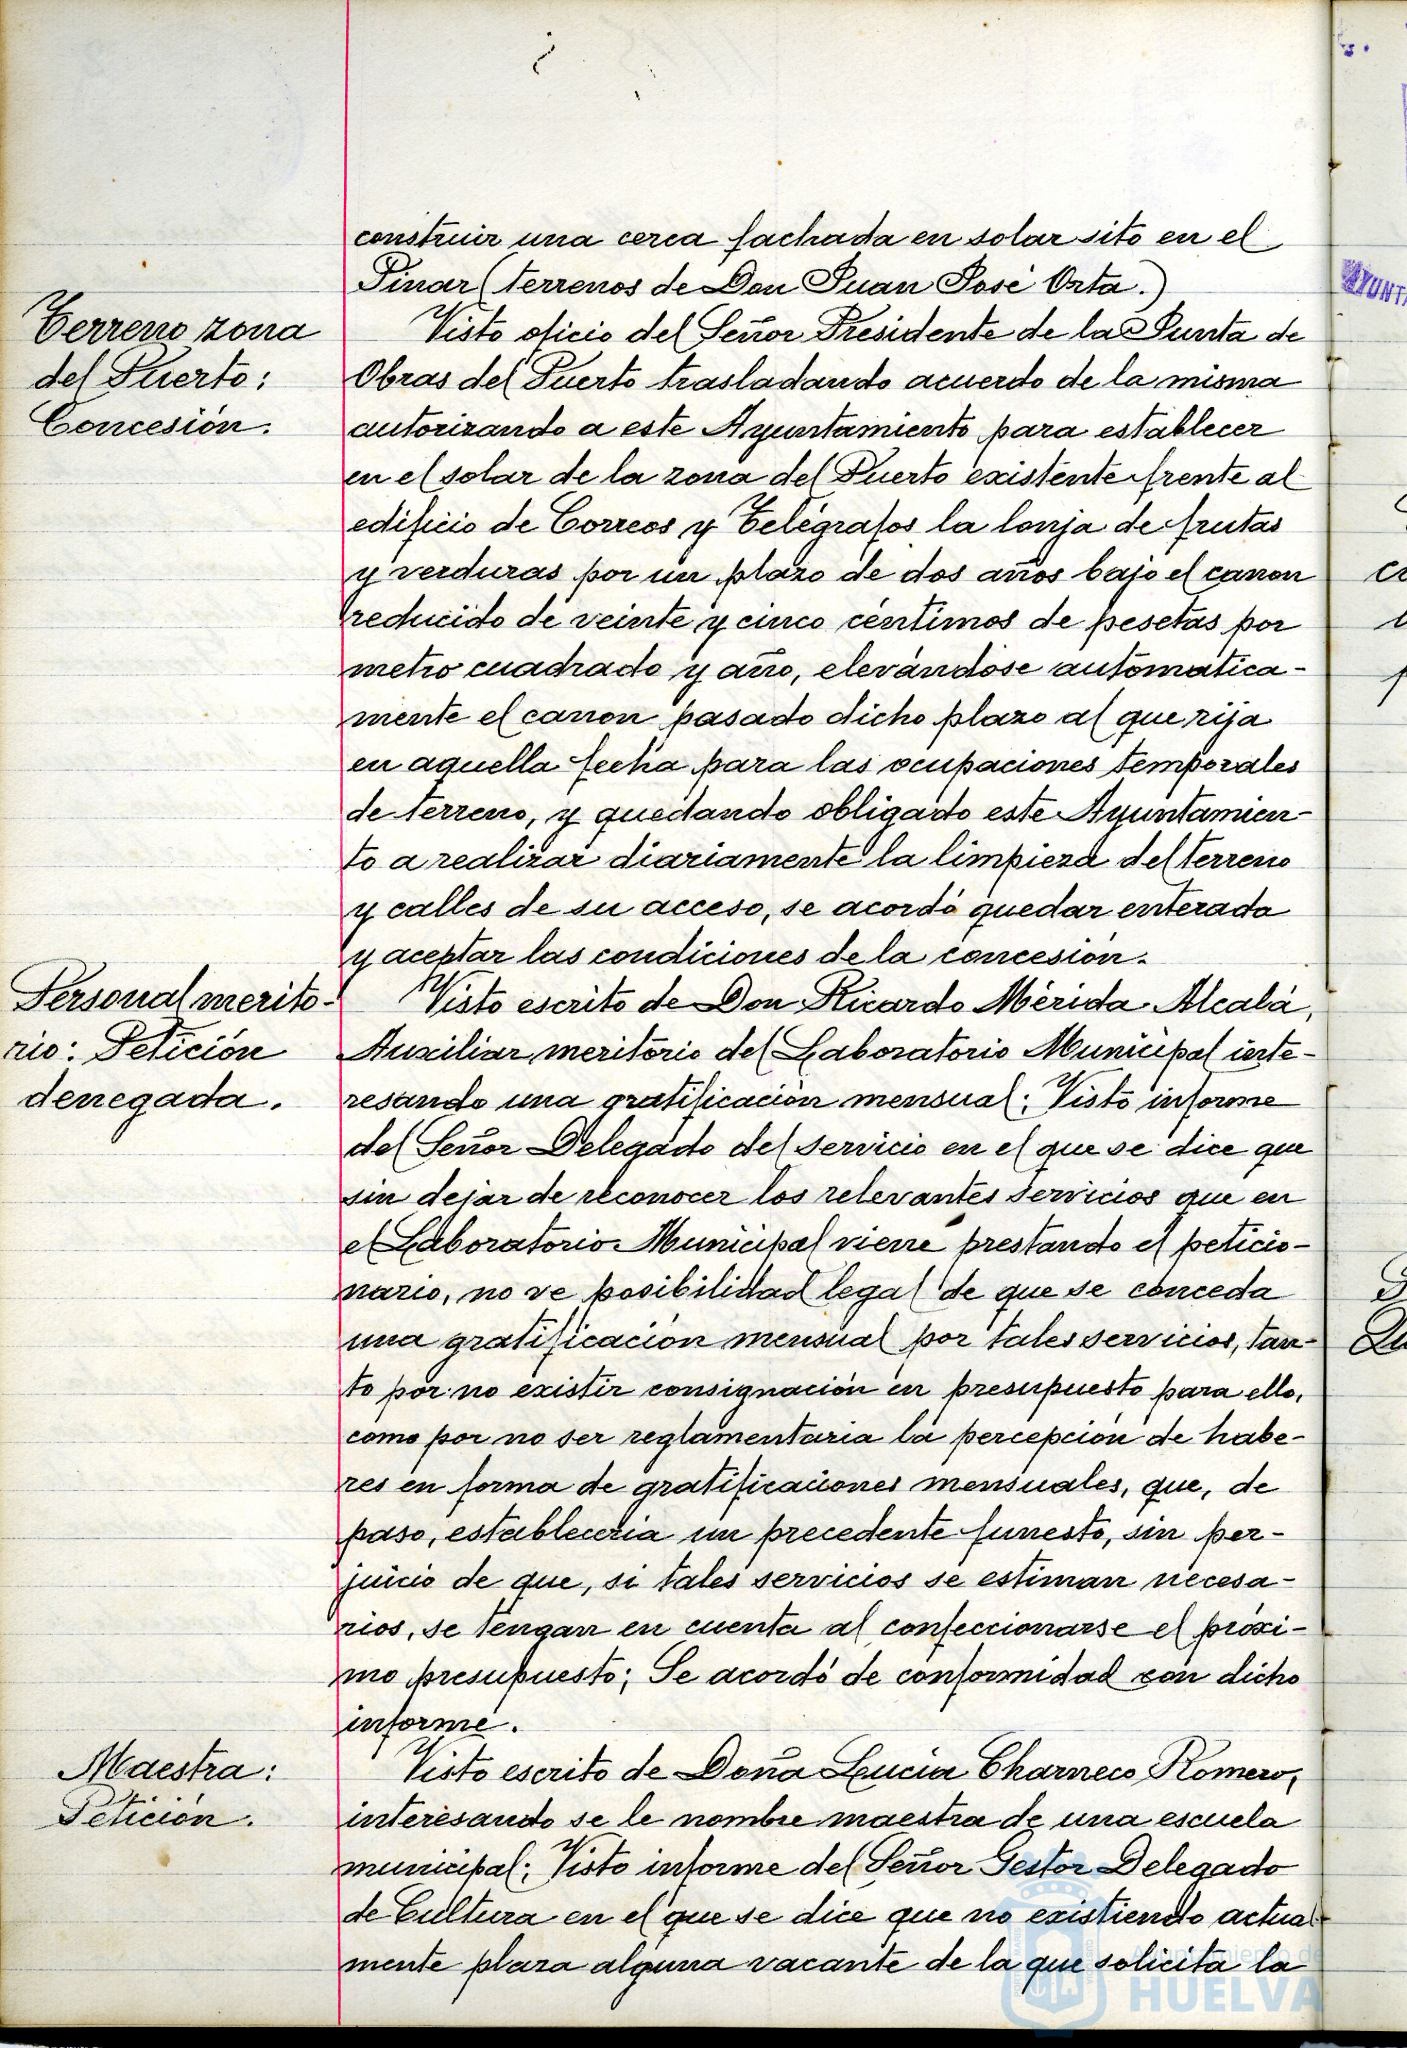 construir una cerca fachada en solar sito en el
Pinar (terrenos de Don Juan José Orta.)
Terreno zona
del Puerto:
Concesión.
Visto oficio del Señor Presidente de la Junta de
Obras del Puerto trasladando acuerdo de la misma
autorizando a este Ayuntamiento para establecer
en el solar de la zona del Puerto existente frente al
edificio de Correos y Telégrafos la lonja de frutas
y verduras por un plazo de dos años bajo el canon
reducido de veinte y cinco céntimos de pesetas por
metro cuadrado y año, elevándose automática-
mente el canon pasado dicho plazo al que rija
en aquella fecha para las ocupaciones temporales
de terreno, y quedando obligado este Ayuntamien-
to a realizar diariamente la limpieza del terreno
y calles de su acceso, se acordó quedar enterada
y aceptar las condiciones de la concesión.
Personal merito-
rio: Petición
denegada.
Visto escrito de Don Ricardo Mérida Alcalá,
Auxiliar meritorio del Laboratorio Municipal inte-
resando una gratificación mensual; Visto informe
del Señor Delegado del servicio en el que se dice que
sin dejar de reconocer los relevantes servicios que en
el Laboratorio Municipal viene prestando el peticio-
nario, no ve posibilidad legal de que se conceda
una gratificación mensual por tales servicios, tan-
to por no existir consignación en presupuesto para ello,
como por no ser reglamentaria la percepción de habe-
res en forma de gratificaciones mensuales, que, de
paso, establecería un precedente funesto, sin per-
juicio de que, si tales servicios se estiman necesa-
rios, se tengan en cuenta al confeccionarse el próxi-
mo presupuesto; Se acordó de conformidad con dicho
informe.
Maestra:
Petición.
Visto escrito de Doña Lucía Charneco Romero,
interesando se le nombre maestra de una escuela
municipal; Visto informe del Señor Gestor Delegado
de Cultura en el que se dice que no existiendo actual-
mente plaza alguna vacante de la que solicita la
Ayuntamiento de
HUELVA